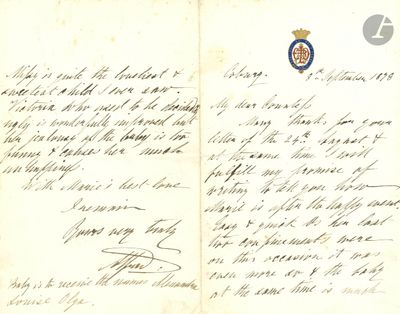 Coburg.
8th September 1878
My dear Countess
Many thanks for your
letter of the 29th August &
at the same time I will
fulfill my promise of
writing to tell you how
Marie is after the happy event.
Easy & quick as her last
two confinements were
on this occasion it was
even more so & the baby
at the same time is much
is quite the loveliest &
sweetest child I ever saw.
Victoria who used to be decidedly
ugly is wonderfully improved but
her jealousy of the baby is too
funny & makes her much
With Marie's best love
I remain
Yours very truly
Alfred
Baby is to receive the names Alexandra
Louise Olga.